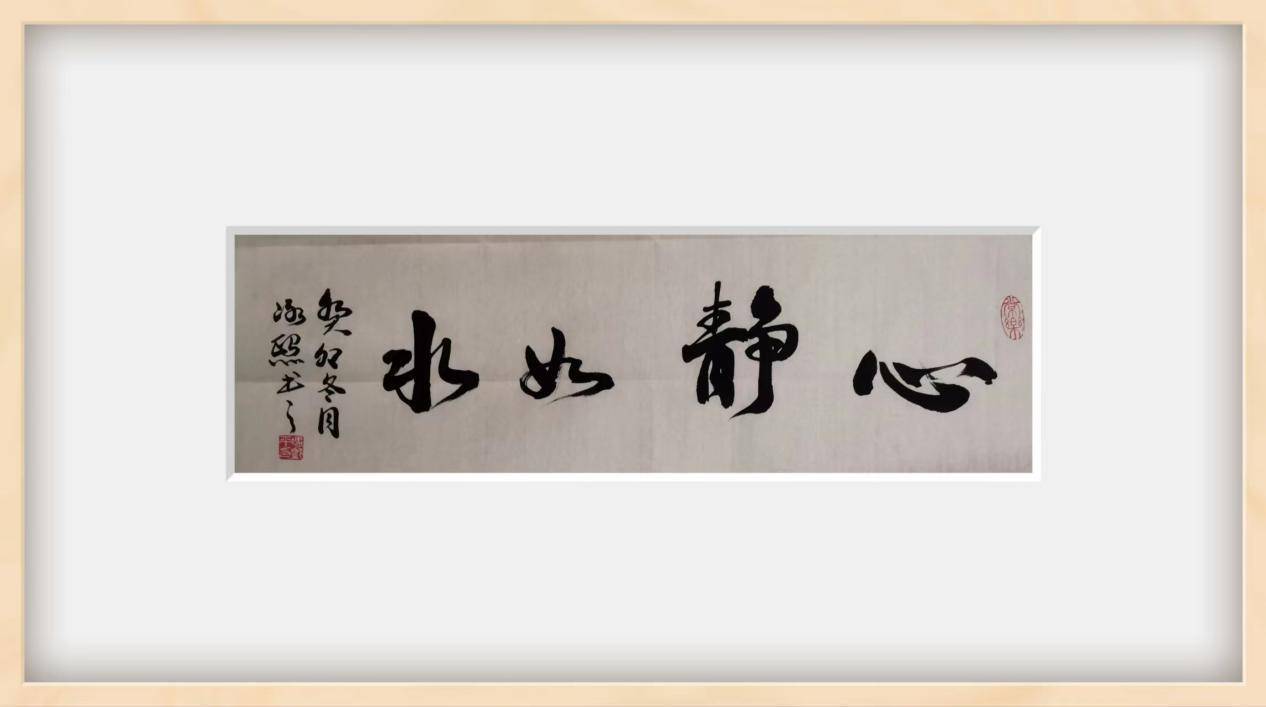 心静如水
癸卯冬月
泳熙书之